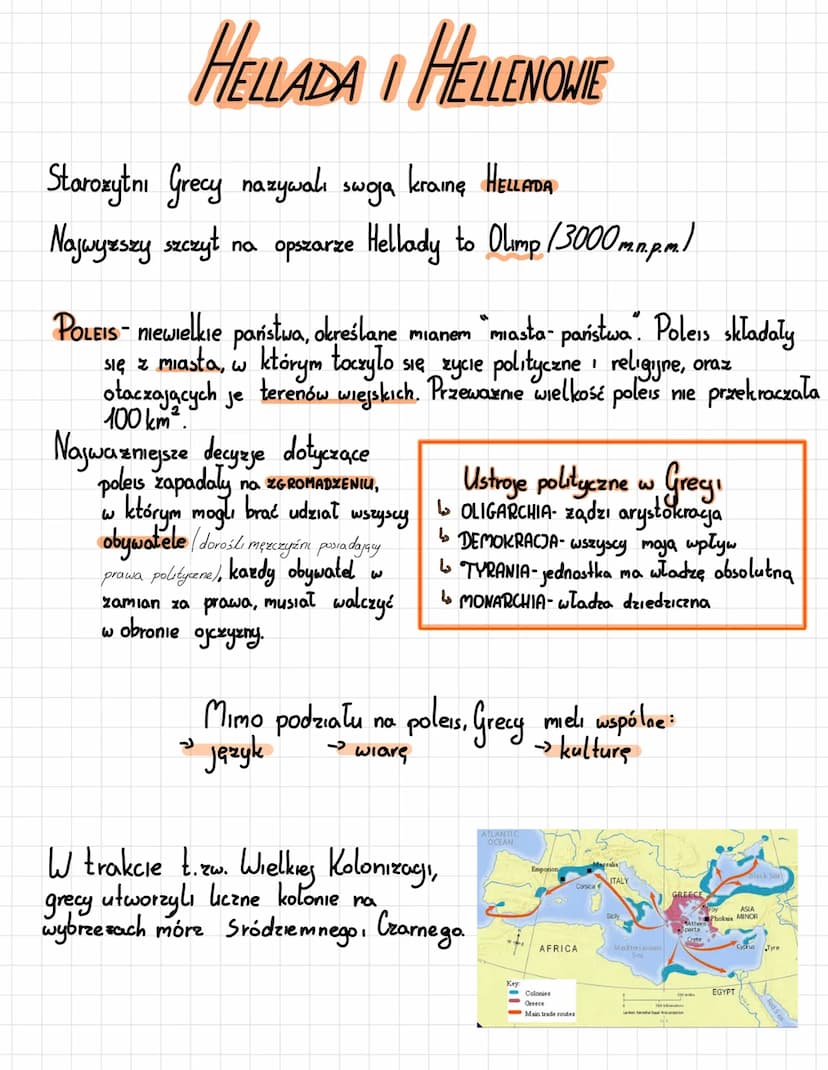 HELLADA I HELLENOWIE
Starożytni Grecy nazywali swoją krainę HELLADĄ
Najwyższy szczyt na opszarze Hellady to Olimp (3000 m.n.p.m.)
POLEIS - niewielkie państwa, określane mianem "miasta-państwa". Poleis składały
się z miasta, w którym toczyło się życie polityczne i religijne, oraz
otaczających je terenów wiejskich. Przeważnie wielkość poleis nie przekraczała
100 km².
Najważniejsze decyzje dotyczące
poleis zapadały na ZGROMADZENIU,
w którym mogli brać udział wszyscy
obywatele (dorośli mężczyźni posiadający
prawa polityczne), każdy obywatel w
zamian za prawa, musiał walczyć
w obronie ojczyzny.
Ustroje polityczne w Grecji
↳ OLIGARCHIA- żądzi arystokracja
↳ DEMOKRACJA- wszyscy mają wpływ
↳ TYRANIA- jednostka ma władzę absolutną
↳ MONARCHIA- władza dziedziczna
Mimo podziału na poleis, Grecy mieli wspólne:
→ język → wiarę → kulturę
W trakcie t.zw. Wielkiej Kolonizacji,
grecy utworzyli liczne kolonie na
wybrzeżach mórz Śródziemnego i Czarnego.
ATLANTIC
OCEAN
Emporion
Massalia
Corsica
ITALY
Black Sea
GREECE
Troy
ASIA
MINOR
Phokaia
Athens
Sparta
Sicily
Crete
Cyprus
Tyre
AFRICA
Mediterranean
Sea
EGYPT
Red Sea
Key
Colonies
Greece
Main trade routes